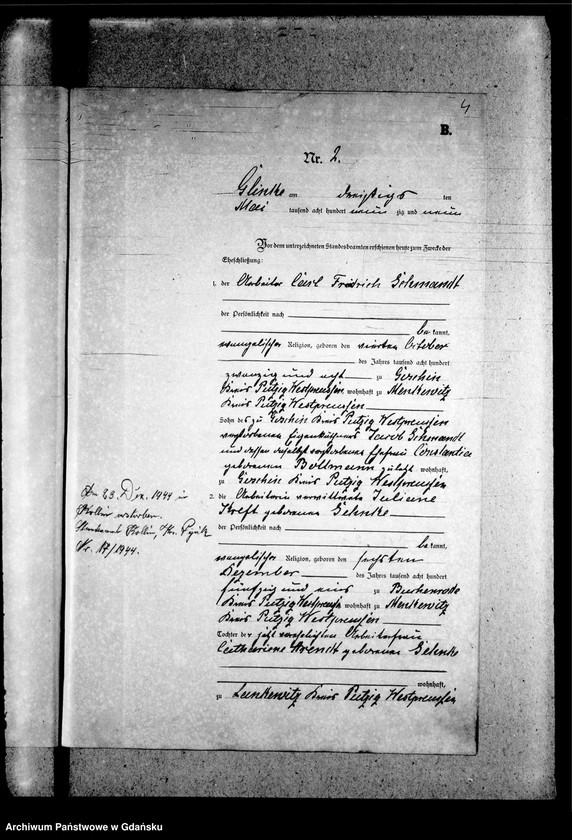 4
B.
Nr. 2.
Glinke am dreißigs ten
Mai tausend acht hundert neun zig und neun
Vor dem unterzeichneten Standesbeamten erschienen heute zum Zwecke der
Eheschließung:
1. der Arbeiter Carl Fridrich Schmandt
der Persönlichkeit nach
be kannt,
evangelischer Religion, geboren den vierten October
des Jahres tausend acht hundert
zwanzig und acht zu Gerschin
Kreis Putzig Westpreußen wohnhaft zu Menkewitz
Kreis Putzig Westpreußen
Sohn des zu Gerschin Kreis Putzig Westpreußen
verstorbenen Eigenkäthners Jacob Schmandt
und dessen daselbst verstorbene Ehefrau Constantia
geborenen Bollmann zuletzt wohnhaft,
zu Gerschin Kreis Putzig Westpreußen
2. die Arbeiterin verwittwete Juliane
Kreft geborene Gehnke
der Persönlichkeit nach
be kannt,
evangelischer Religion, geboren den sechsten
Dezember des Jahres tausend acht hundert
fünfzig und eins zu Buchenrode
Kreis Putzig Westpreußen wohnhaft zu Menkewitz
Kreis Putzig Westpreußen
Tochter der jetzt verehelichten Arbeiterfrau
Catharine Arendt geborene Gehnke
wohnhaft,
zu Lankewitz Kreis Putzig Westpreußen
Am 23. Dez. 1944 in
verstorben.
Nr. 17/1944.
Archiwum Państwowe w Gdańsku